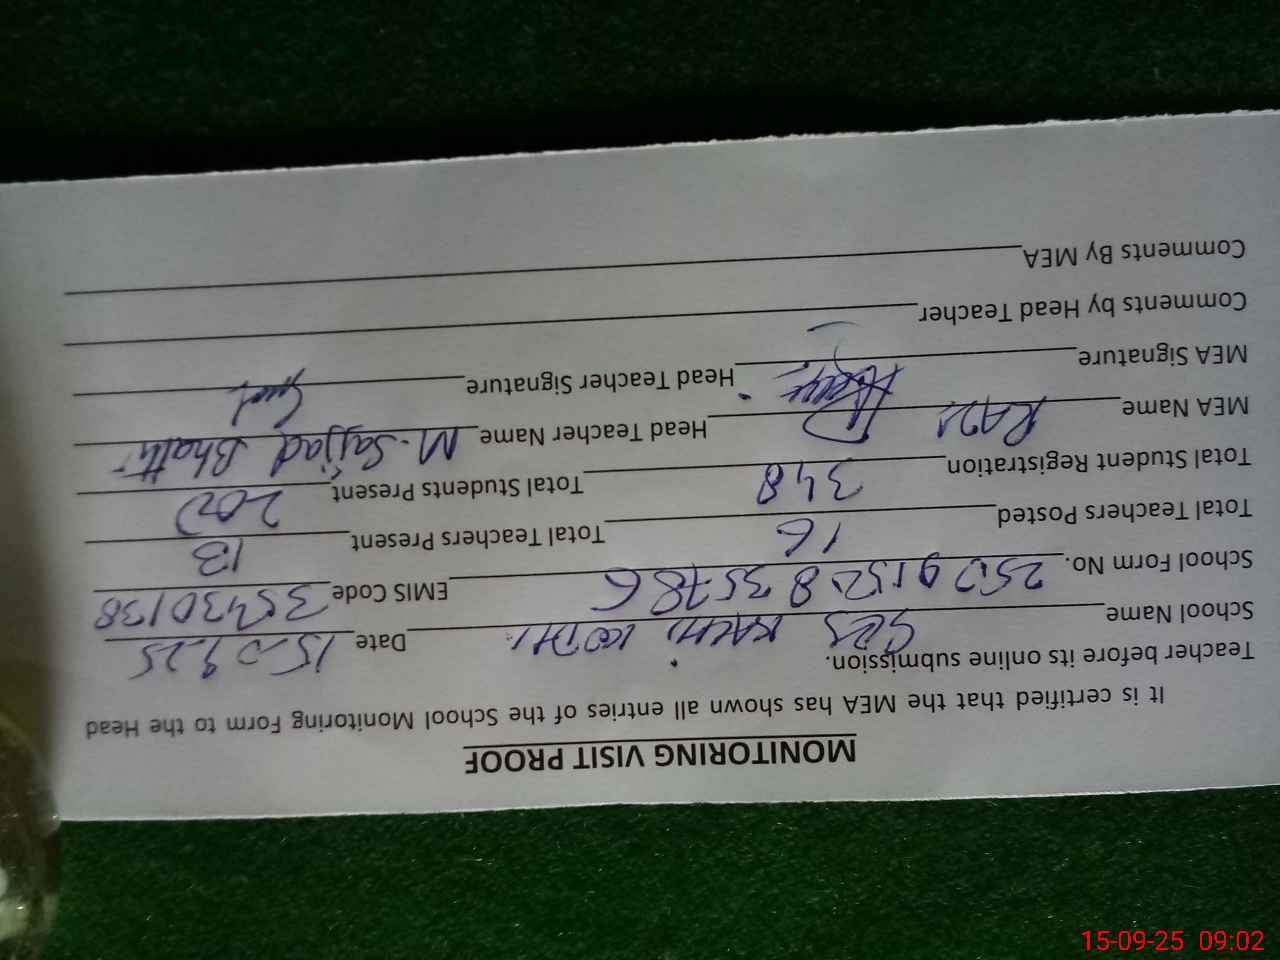 MONITORING VISIT PROOF
It is certified that the MEA has shown all entries of the School Monitoring Form to the Head
Teacher before its online submission.
School Name GES KACHI KOTHI Date 15.09.25
School Form No. 250915 EMIS Code 35430138
Total Teachers Posted 16 Total Teachers Present 13
Total Student Registration 348 Total Students Present 200
MEA Name Head Teacher Name M. Sajjad Bhatti
MEA Signature Head Teacher Signature
Comments by Head Teacher
Comments By MEA
15-09-25 09:02